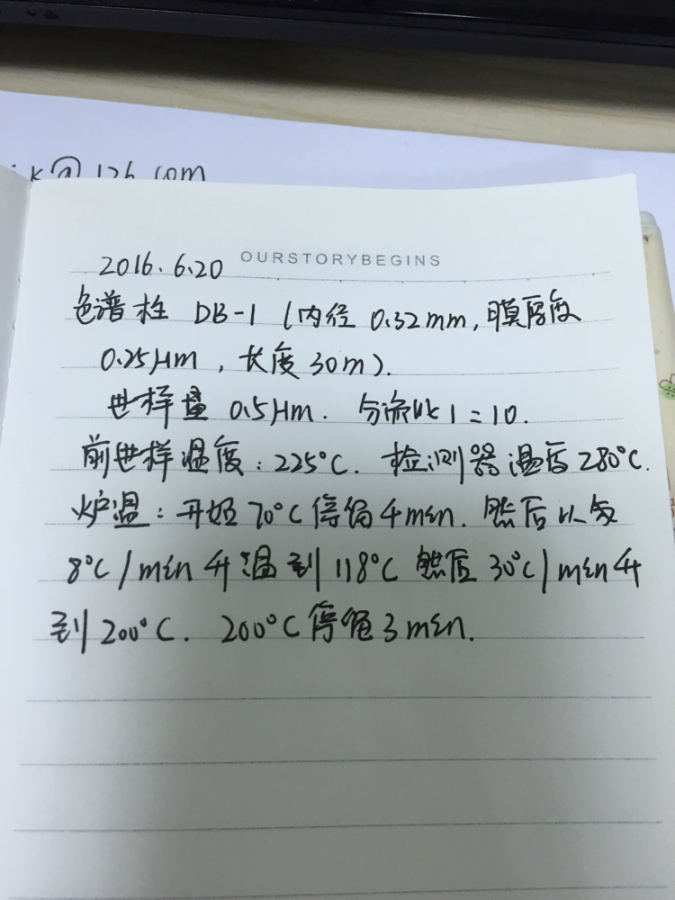 k@126.com
OURSTORYBEGINS
2016.6.20
色谱柱 DB-1 (内径 0.32mm, 膜厚度
0.25μm, 长度 30m).
进样量 0.5μm. 分流比 1=10.
前进样温度: 225°C. 检测器温度 280°C.
炉温: 开始 70°C 停留 4min. 然后以每
8°C/min 升温到 118°C 然后 30°C/min 升
到 200°C. 200°C 停留 3min.